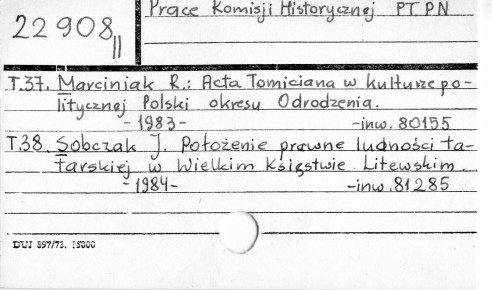 Prace Komisji Historycznej PTPN
22908
II
T.37. Marciniak R.: Acta Tomiciana w kulturze po-
litycznej Polski okresu Odrodzenia.
-1983- -inw. 80155
T.38. Sobczak J. Położenie prawne ludności ta-
tarskiej w Wielkim Księstwie Litewskim.
-1984- -inw. 81285
DUJ 897/73. 15000